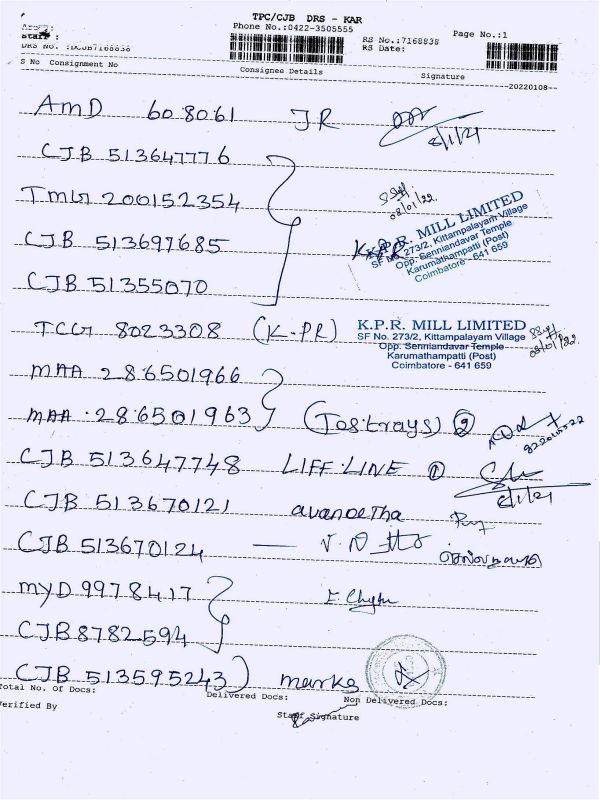 TPC/CJB DRS - KAR
Phone No.:0422-3505555
Page No.:1
RS No.:7168838
RS Date:
Area:
Staff :
DRS No. :DCJB7168838
S No Consignment No Consignee Details Signature
--20220108--
AMD 608061 JR 8/1/21
CJB 513647776
TMG 200152354 08/01/22
CJB 513697685
K.P.R. MILL LIMITED
SF No. 273/2, Kittampalayam Village
Opp. Senniandavar Temple
Karumathampatti (Post)
Coimbatore - 641 659
CJB 51355070
TCG 8023308 (K-PR)
K.P.R. MILL LIMITED
SF No. 273/2, Kittampalayam Village
Opp. Senniandavar Temple
Karumathampatti (Post)
Coimbatore - 641 659
08/01/22
MAA 286501966
MAA 286501963 (Tostrays) 2
CJB 513647748 LIFF LINE 1 8/1/21
CJB 513670121 avaneetha
CJB 513670124
MYD 9978417
CJB 8782594
CJB 513595243 marks
Total No. Of Docs: Delivered Docs: Non Delivered Docs:
Verified By Staff Signature